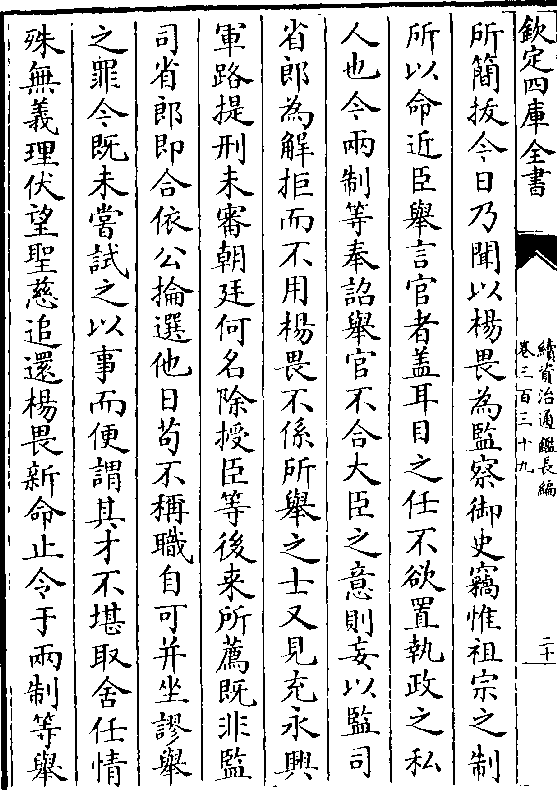 欽定四庫全書
續資治通鑑長編
卷三百三十九
二十
所簡拔今日乃聞以楊畏為監察御史竊惟祖宗之制
所以命近臣舉言官者盖耳目之任不欲置執政之私
人也今兩制等奉詔舉官不合大臣之意則妄以監司
省郎為解拒而不用楊畏不係所舉之士又見充永興
軍路提刑未審朝廷何名除授臣等後来所薦既非監
司省郎即合依公掄選他日苟不稱職自可并坐謬舉
之罪今既未嘗試之以事而便謂其才不堪取舍任情
殊無義理伏望聖慈追還楊畏新命止令于兩制等舉